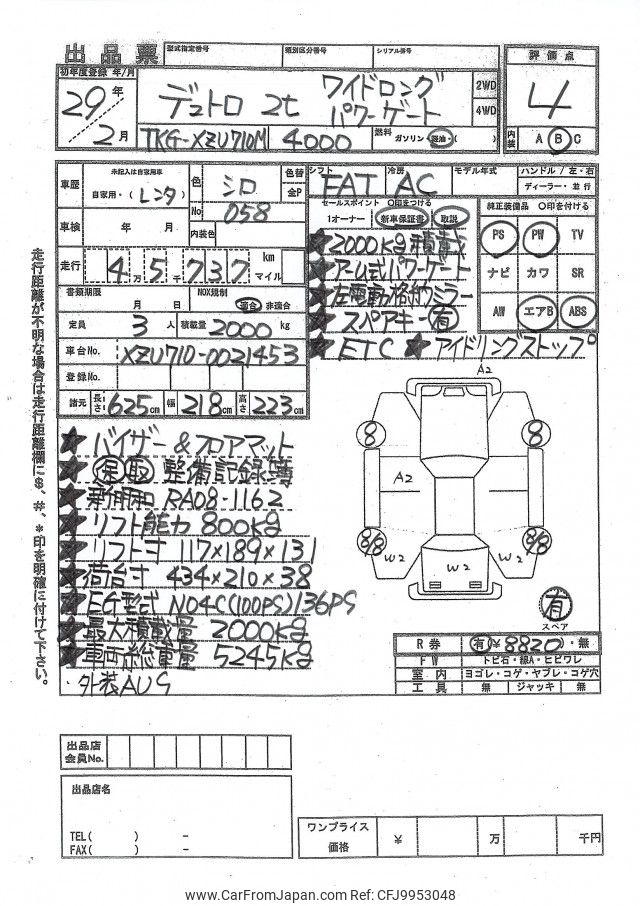 出品票
型式指定番号
類別区分番号
シリアル番号
評価点
初年度登録 年/月
29年
2月
デュトロ 2t ワイドロング
パワーゲート
2WD
4WD
4
TKG-XZU710M
4000
燃料 ガソリン・軽油・( )
内装 A B C
車歴
未記入は自家用車
自家用・(レンタ)
色
シロ
No 058
色替
全P
内装色
シフト
FAT
冷房
AC
モデル年式
ハンドル/左・右
ディーラー・並行
車検 年 月
走行 4万5千737 km マイル
セールスポイント 〇印をつける
1オーナー 新車保証書 取説
純正装備品 〇印を付ける
PS PW TV
ナビ カワ SR
AW エアB ABS
★2000kg積載
★アーム式パワーゲート
★左電動格納ミラー
★スペアキー有
★ETC ★アイドリングストップ
書類期限 月 日
NOX規制 適合 非適合
定員 3人 積載量 2000kg
車台No. XZU710-0021453
登録No.
諸元 長さ 625cm 幅 218cm 高さ 223cm
走行距離が不明な場合は走行距離欄に$、#、*印を明確に付けて下さい。
★バイザー&フロアマット
★保取 整備記録簿
★RA08-1162
★リフト能力 800kg
★リフト寸 117×189×131
★荷台寸 434×210×38
★EG型式 N04C(100PS)136PS
★最大積載量 2000kg
★車両総重量 5245kg
・外装AUS
A2
8
8
A2
8/8
8/8
W2
W2
W2
有
スペア
R券 有¥8820・無
FW トビ石・線A・ヒビワレ
室内 ヨゴレ・コゲ・ヤブレ・コゲ穴
工具 無 ジャッキ 無
出品店
会員No.
出品店名
TEL( ) -
FAX( ) -
ワンプライス
価格
¥ 万 千円
www.CarFromJapan.com Ref: CFJ9953048